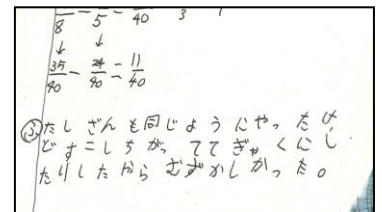 8 - 5 - 40 3
↓ ↓
35/40 - 24/40 = 11/40
ふたしざんも同じようにやったけ
どすこしちがっててぎゃくにし
たりしたからむずかしかった。